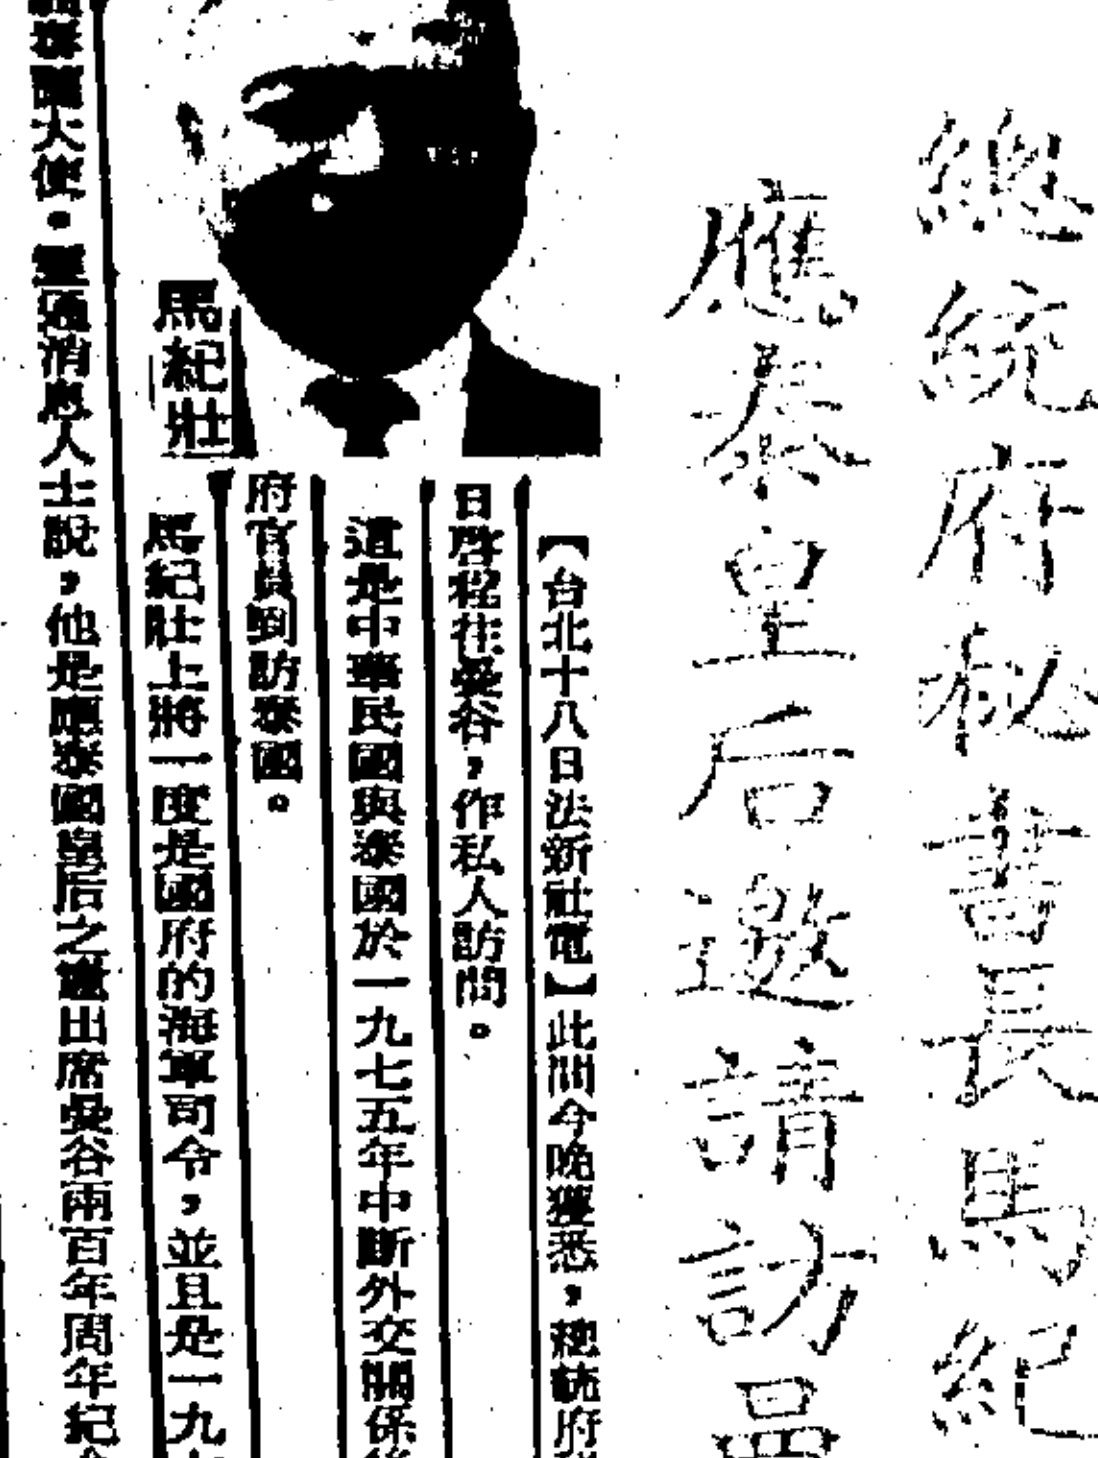 總統府秘書長馬紀
應泰皇后邀請訪曼
【台北十八日法新社電】此間今晚獲悉，總統府
日啓程往曼谷，作私人訪問。
這是中華民國與泰國於一九七五年中斷外交關係
府官員到訪泰國。
馬紀壯上將一度是國府的海軍司令，並且是一九
大使。靈通消息人士說，他是應泰國皇后之邀出席曼谷兩百年周年紀
馬紀壯